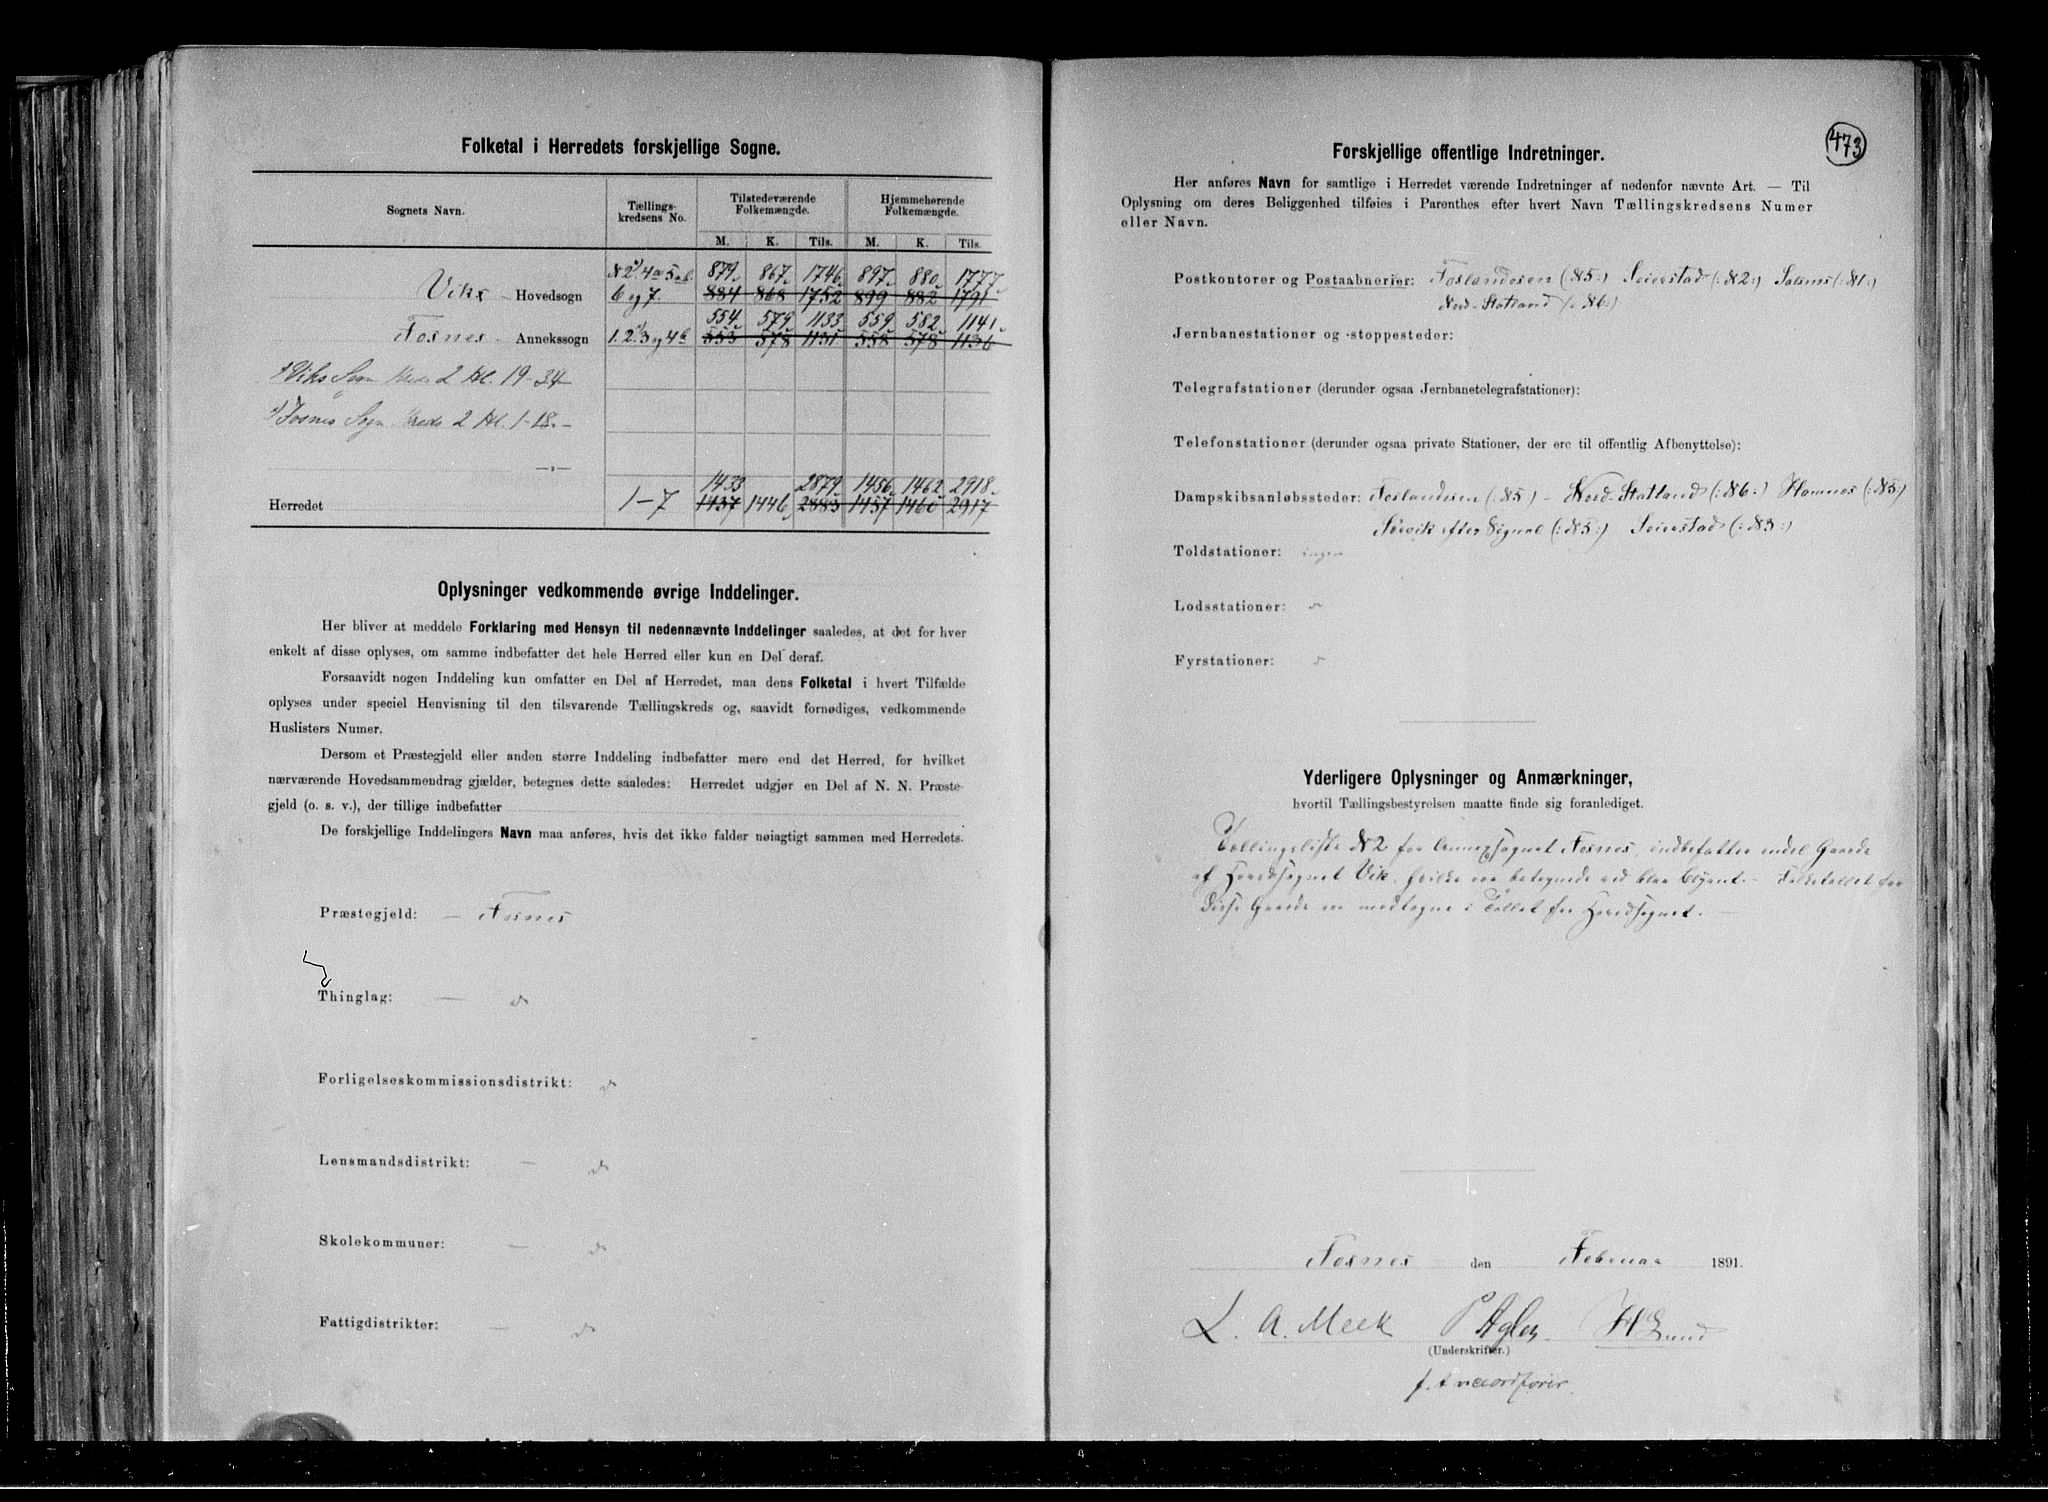 Folketal i Herredets forskjellige Sogne.
Sognets Navn. Tællings-kredsens No. Tilstedeværende Folkemængde. Hjemmehørende Folkemængde.
M. K. Tils. M. K. Tils.
879 867 1746 897 880 1777
Viks Hovedsogn 6 og 7. 884 868 1752 899 882 1791
554 579 1133 559 582 1141
Fosnes Annekssogn 1. 2. 3 og 4b 553 578 1131 558 578 1136
1) Viks Sogn Kreds 2 Hl. 19-34
2) Fosnes Sogn Kreds 2 Hl. 1-18.
1433 2879 1456 1462 2918
Herredet 1-7 1437 1446 2883 1457 1460 2917
Oplysninger vedkommende øvrige Inddelinger.
Her bliver at meddele Forklaring med Hensyn til nedennævnte Inddelinger saaledes, at det for hver
enkelt af disse oplyses, om samme indbefatter det hele Herred eller kun en Del deraf.
Forsaavidt nogen Inddeling kun omfatter en Del af Herredet, maa dens Folketal i hvert Tilfælde
oplyses under speciel Henvisning til den tilsvarende Tællingskreds og, saavidt fornødiges, vedkommende
Huslisters Numer.
Dersom et Præstegjeld eller anden større Inddeling indbefatter mere end det Herred, for hvilket
nærværende Hovedsammendrag gjælder, betegnes dette saaledes: Herredet udgjør en Del af N. N. Præste-
gjeld (o. s. v.), der tillige indbefatter
De forskjellige Inddelingers Navn maa anføres, hvis det ikke falder nøiagtigt sammen med Herredets.
Præstegjeld: — Fosnes
Thinglag: —
Forligelseskommissionsdistrikt:
Lensmandsdistrikt: —
Skolekommuner: —
Fattigdistrikter: —
473
Forskjellige offentlige Indretninger.
Her anføres Navn for samtlige i Herredet værende Indretninger af nedenfor nævnte Art. — Til
Oplysning om deres Beliggenhed tilføies i Parenthes efter hvert Navn Tællingskredsens Numer
eller Navn.
Postkontorer og Postaabnerier: Foslandosen (:№5:) Seierstad (:№2:) Salsnes (:№1:)
Nord-Statland (:№6:)
Jernbanestationer og -stoppesteder:
Telegrafstationer (derunder ogsaa Jernbanetelegrafstationer):
Telefonstationer (derunder ogsaa private Stationer, der ere til offentlig Afbenyttelse):
Dampskibsanløbssteder: Foslandosen (:№5:) - Nord-Statland (:№6:) Hamnes (:№5:)
Sørvik efter Signal (:№5:) Seierstad (:№3:)
Toldstationer: ingen
Lodsstationer:
Fyrstationer:
Yderligere Oplysninger og Anmærkninger,
hvortil Tællingsbestyrelsen maatte finde sig foranlediget.
Tællingsliste №2 for Annexsognet Fosnes, indbefatter endel Gaarde
af Hovedsognet Vik, hvilke ere betegnede ved blaa Blyant. - Folketallet for
disse Gaarde er medtagne i Tallet for Hovedsognet. -
Fosnes den Februar 1891.
L. A. Meek P Agler H Lund
(Underskrifter.)
f. t viceordfører.